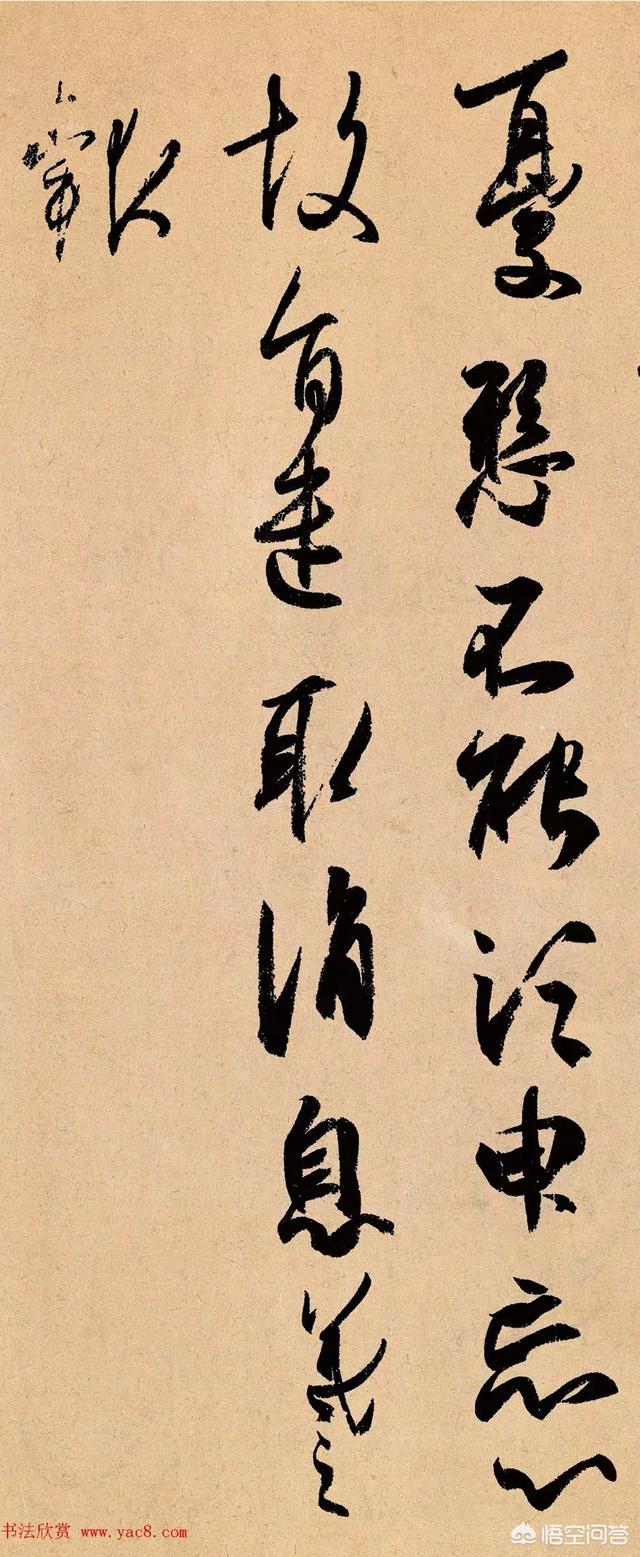 憂懸不能須臾忘心
故旨遣取消息羲之
報
书法欣赏 www.yac8.com
悟空问答